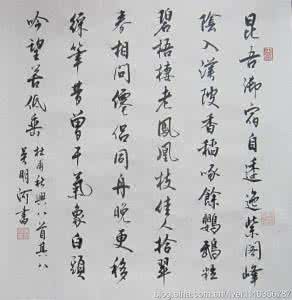 昆吾御宿自逶迤紫閣峰
陰入渼陂香稻啄餘鸚鵡粒
碧梧棲老鳳凰枝佳人拾翠
春相問僊侶同舟晚更移
綵筆昔曾干氣象白頭
吟望苦低垂
杜甫秋興八首其八
吴明河書